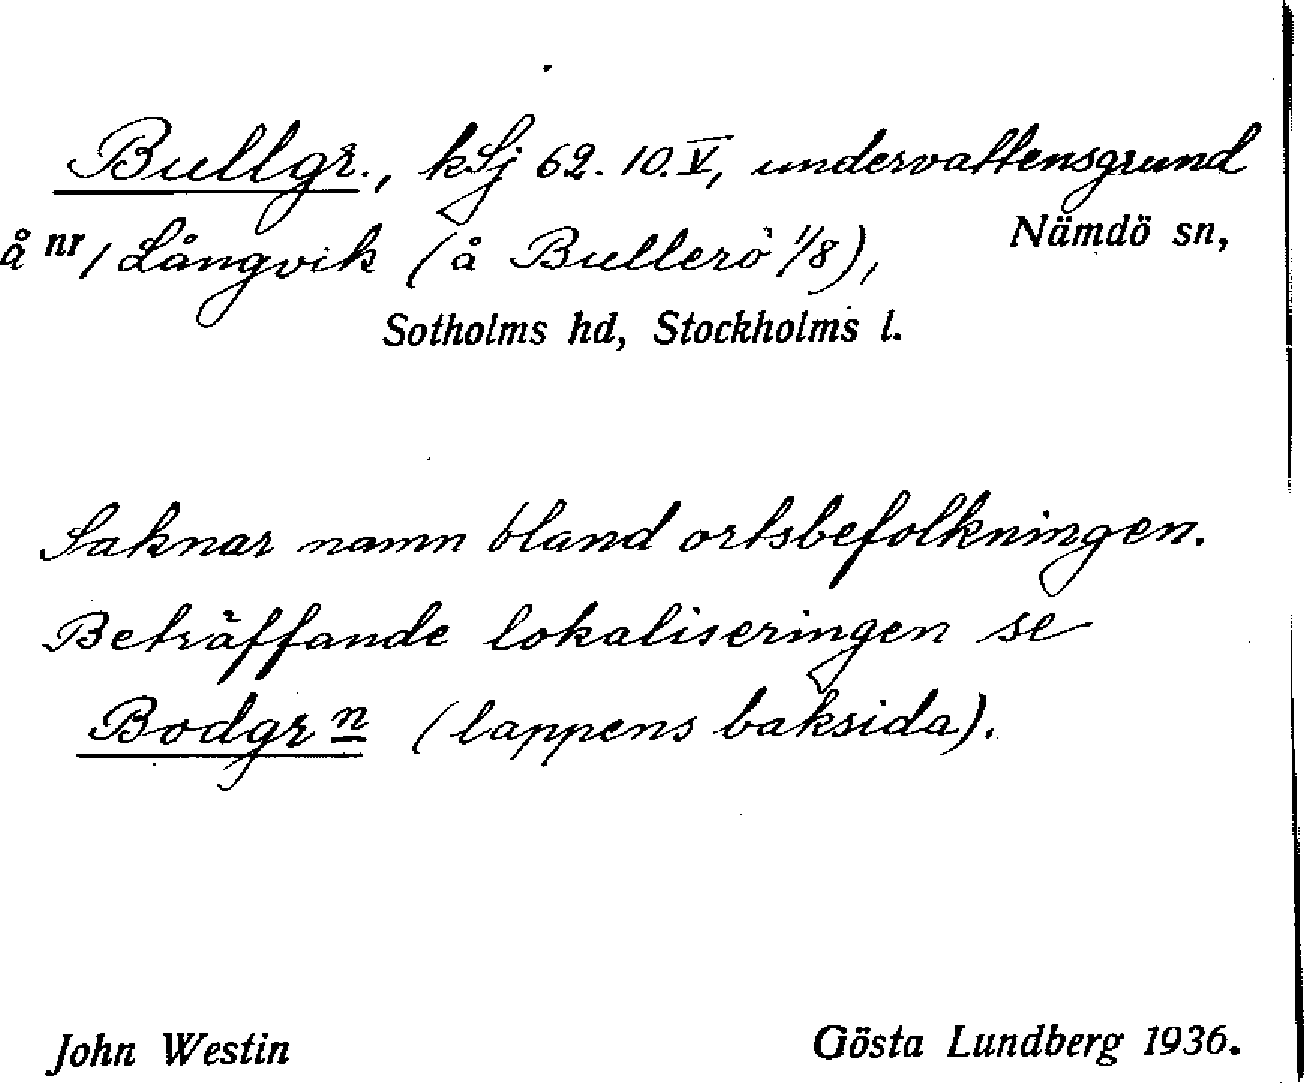 Bullgr., kSj 62.10.V, undervattensgrund
å nr / Långvik (å Bullerö 1/8), Nämdö sn,
Sotholms hd, Stockholms l.
Saknar namn bland ortsbefolkningen.
Beträffande lokaliseringen se
Bodgrn (lappens baksida).
John Westin Gösta Lundberg 1936.